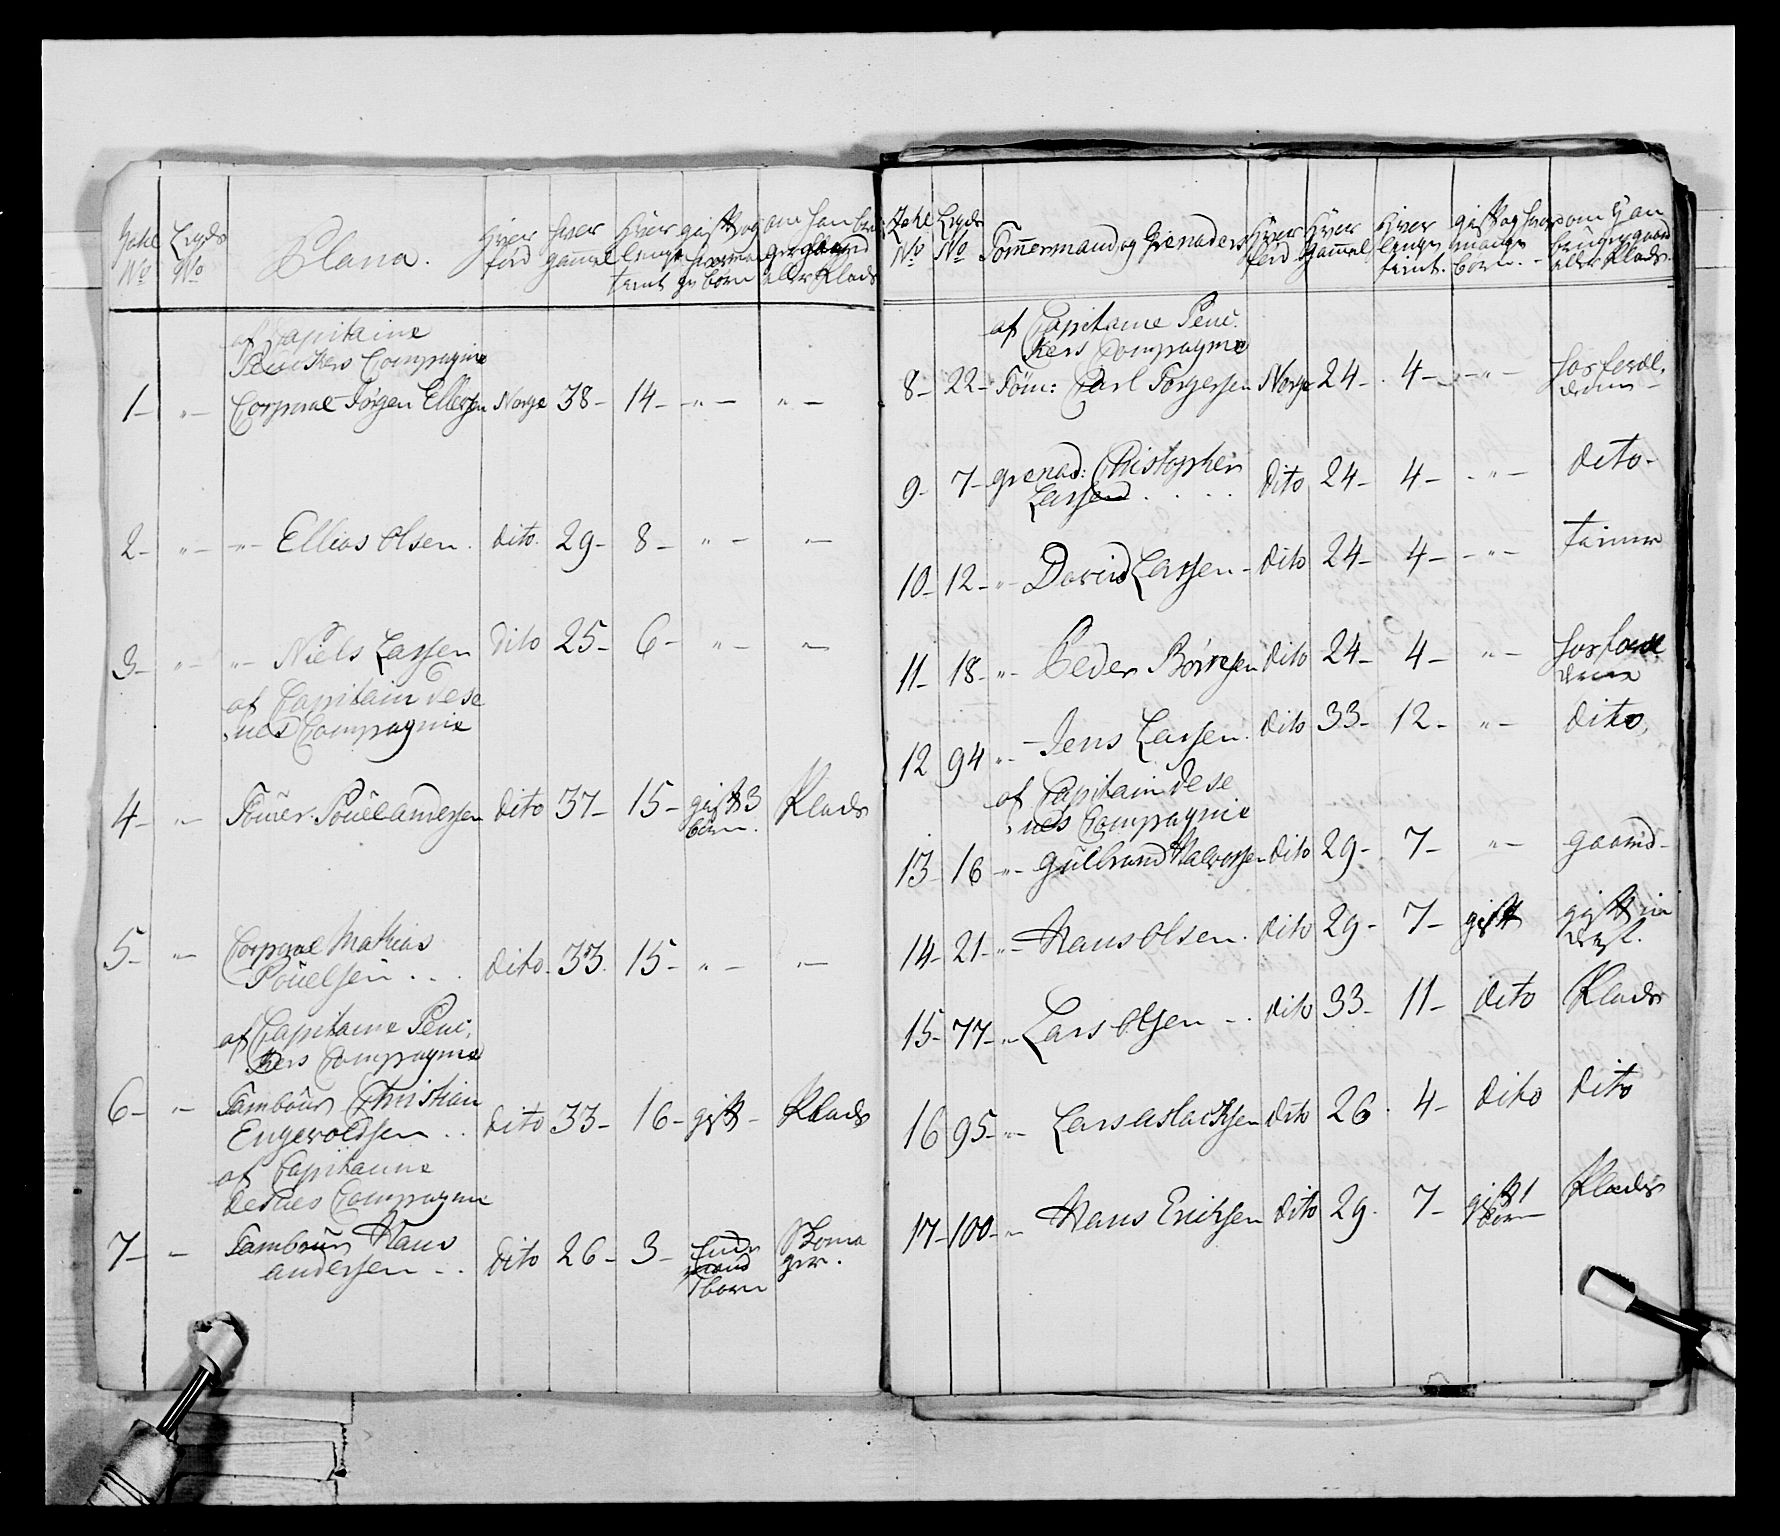 Plana.
Tahl No
Legds No
Hver fød
hver gamel
hver lenge tient
gift og hvormange børn
om han bruger gaard eller Plads
af Capitaine
Peuckers Compagnie
1 - " - Corporal Jørgen Ellefsen Norge 38 - 14 - " - " -
2 - " - " - Ellias Olsen. dito. 29 - 8 - " - " -
3 - " - " - Niels Larssen dito 25 - 6 - " - " -
af Capitain Dese
nes Compagnie
4 - " - Fourer. Pouel Andersen dito 37 - 15 - gift 3 Plads
børn.
5 - " - Corporal Mathias
Pouelsen . . dito - 33. 15 - " - " -
af Capitaine Peuc
kers Compagnie
6 - " - Tambour Christian
Engevoldsen . . dito 33 - 16 - gift - Plads
af Capitaine
Desenes Compagnie
7 - - Tambour Hans
Andersen - . . dito 26 - 3 - Skoma
ger.
1 børn
Tahl No
Legds No
Tømmermand og Grenaderer
Hver fød
Hver gammel
Hver lenge tient.
gift og hvor mange børn. -
om han bruger gaard eller Plads.
af Capitaine Peuc
kers Compagnie
8 - 22 - Tøm: Carl Torgersen Norge 24 - 4 - - " - hos foræl,
drene -
9 - 7 - grenad: Christopher
Larsen . . . . dito 24 - 4 - - " - dito -
10 - 12 - " - David Larssen - dito 24 - 4 - - " - tiener
11 - 18 - " - Peder Børresen dito 24 - 4 - " - hos foræl
drene
12 94 " - Jens Larsen. dito 33 - 12 - " - dito,
af Capitain Dese
nes Compagnie
13 - 16 - " - Gulbrand Halvorsen dito 29 - 7 - " - gaard -
14 - 21 - " - Hans Olsen. dito 29 - 7 - gift
15 - 77 - " Lars Olsen - . dito 33 - 11 - dito Plads
16 95 - " - Lars Aslacksen dito 26 4 - dito dito
17 - 100 - " - Hans Ericksen dito 29. 7 - gift 1 Plads
børn